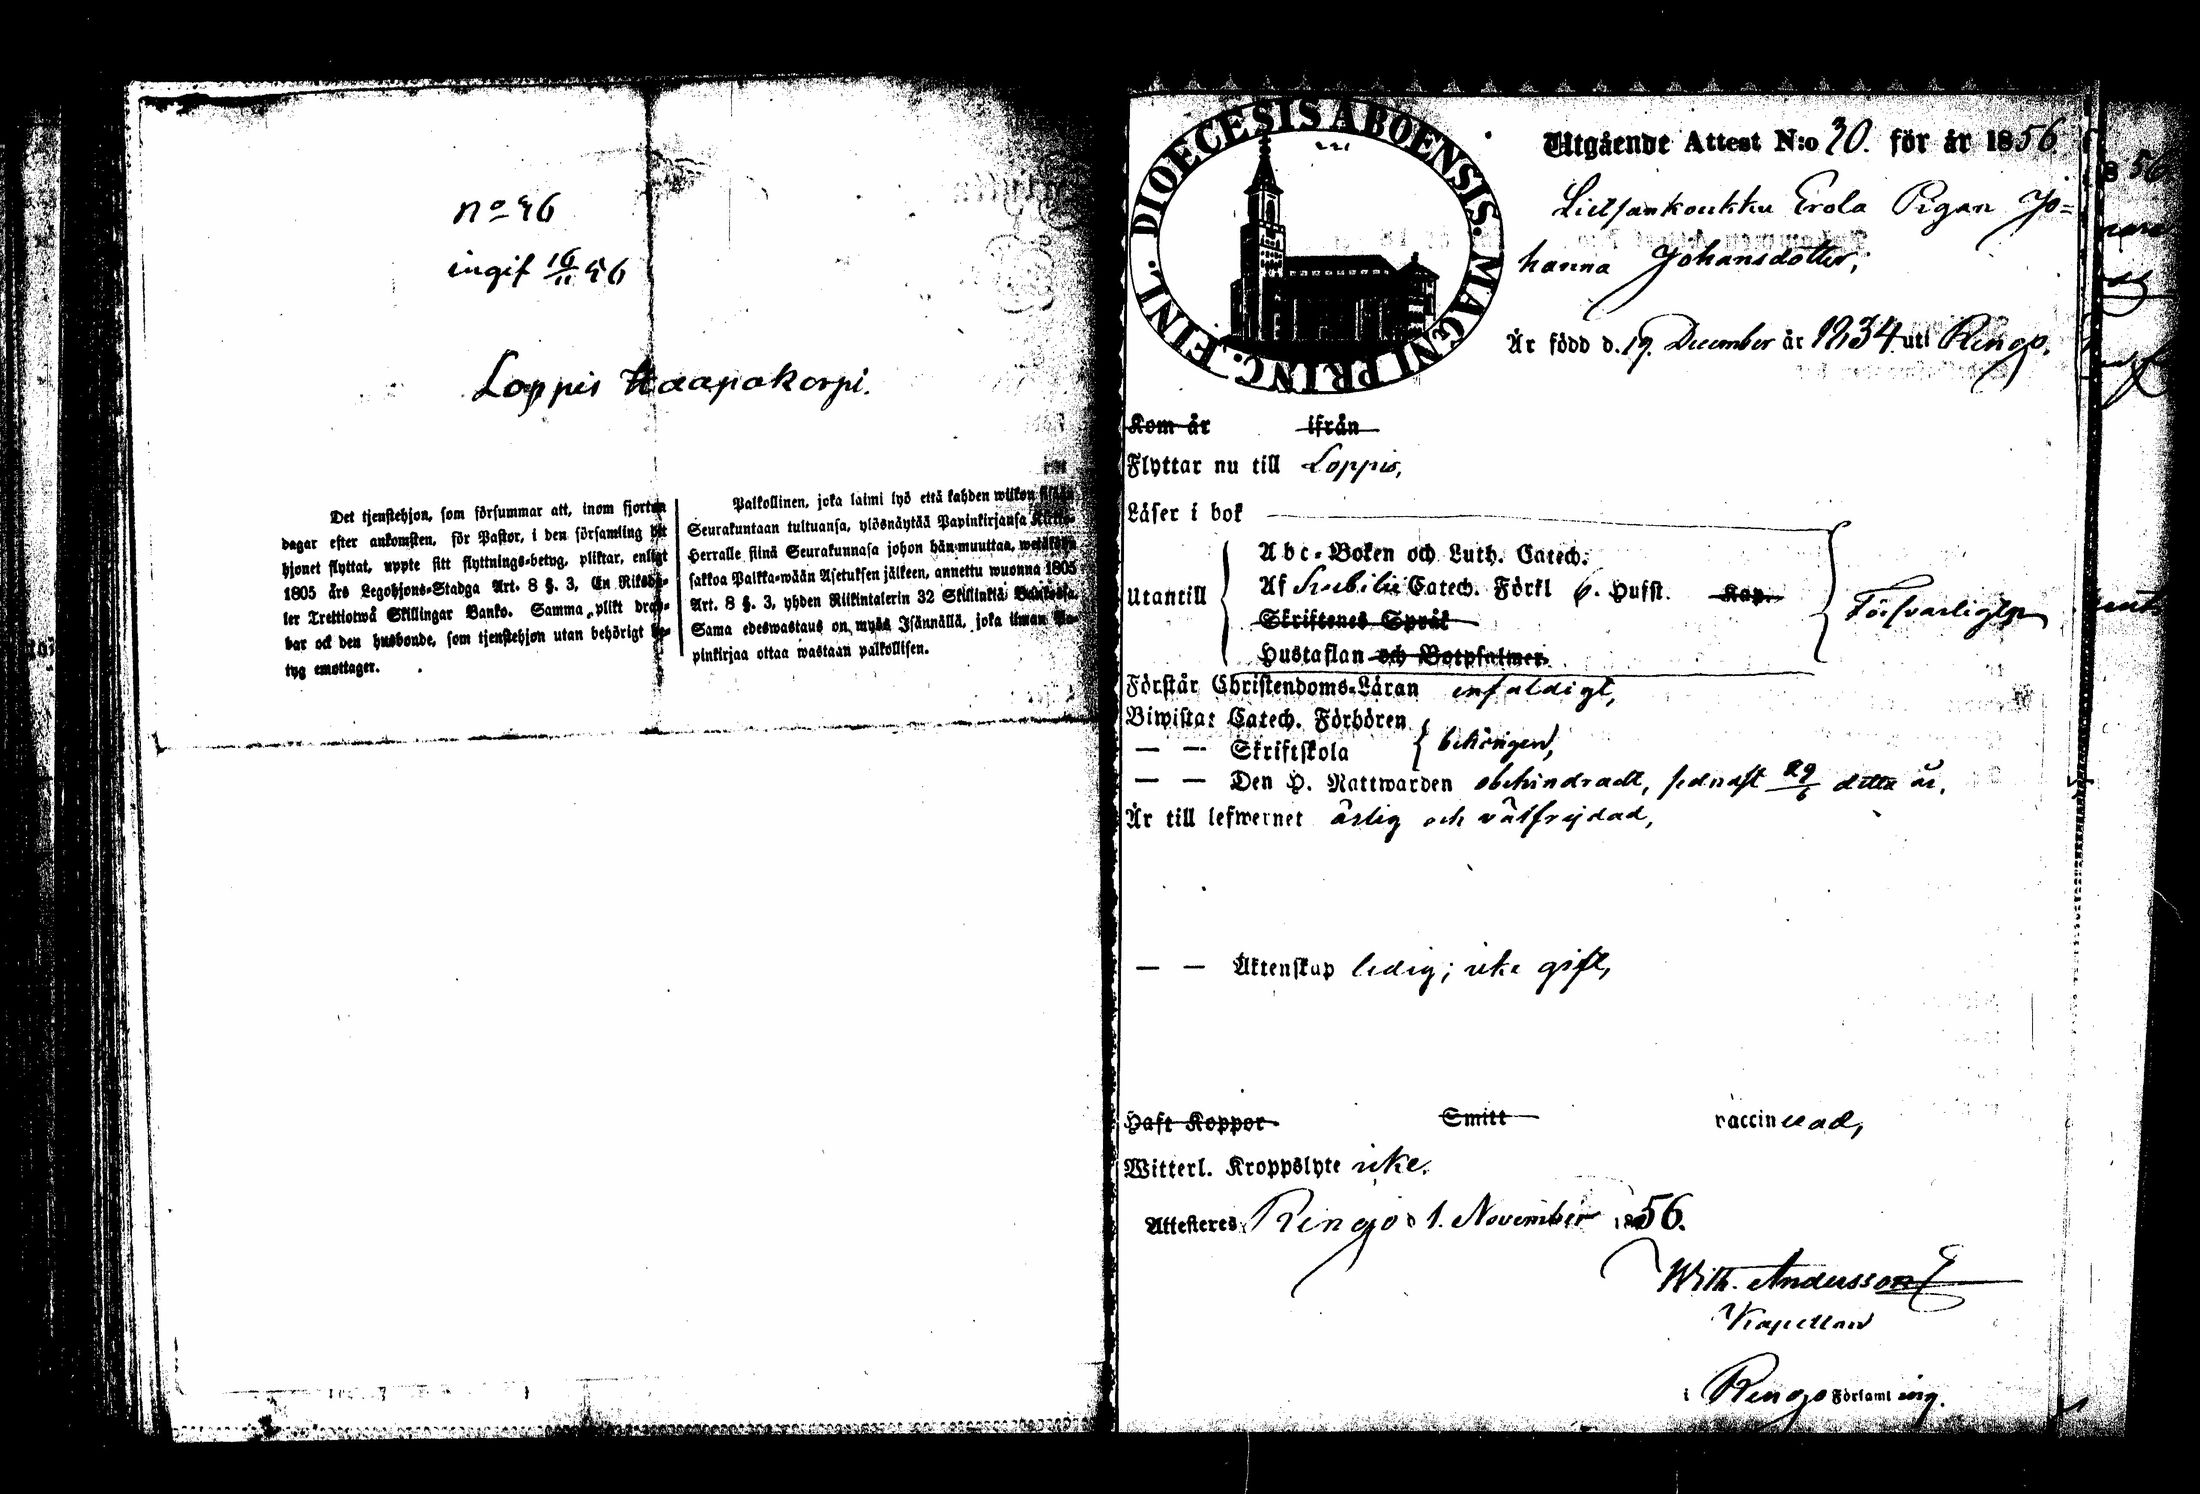 nº 56
ingif 16/11 56
Loppis Haapakorpi.
Det tjenstehjon, som försummar att, inom fjorton
dagar efter ankomsten, för Pastor, i den församling dit
hjonet flyttat, uppte sitt flyttnings-betyg, pliktar, enligt
1805 års Legohjons-Stadga Art. 8 §. 3, En Riksda-
ler Trettiotwå Skillingar Banko. Samma plikt drab-
bar ock den husbonde, som tjenstehjon utan behörigt be-
tyg emottager.
Palkollinen, joka laimi lyö että kahden wiikon sisään
Seurakuntaan tultuansa, ylösnäytää Papinkirjansa Kirkko-
Herralle siinä Seurakunnasa johon hän muuttaa, wetäköön
sakkoa Palkka-wään Asetuksen jälkeen, annettu wuonna 1805
Art. 8 §. 3, yhden Riikintalerin 32 Skillinkiä Bankossa.
Sama edeswastaus on myös Isännällä, joka ilman Pa-
pinkirjaa ottaa wastaan palkollisen.
DIOECESIS ABOENSIS. MAGNI PRINC. FINL.
Utgående Attest N:o 30. för år 1856.
Erola Pigan Jo=
hanna Johansdotter,
Är född d. 19. December år 1834 uti Rengo.
Kom år ifrån
Flyttar nu till Loppis,
Läser i bok
Utantill
Abc-Boken och Luth. Catech.
Af Svebilii Catech. Förkl 6. Hufst. Kap.
Skriftenes Språk
Hustaflan och Botpsalmer
Försvarligen
Förstår Christendoms-Läran enfaldigt,
Biwistat Catech. Förhören
— — Skriftskola
behörigen,
— — Den H. Nattwarden obehindradt, sednast 29/6 detta år,
Är till lefwernet ärlig och välfrejdad,
— — Äktenskap ledig; icke gift,
Haft Koppor Smitt vaccinerad,
Witterl. Kroppslyte icke.
Attesteres Rengo d 1. November 1856.
Wilh. Andersson
Kapellan
i Rengo Församling.